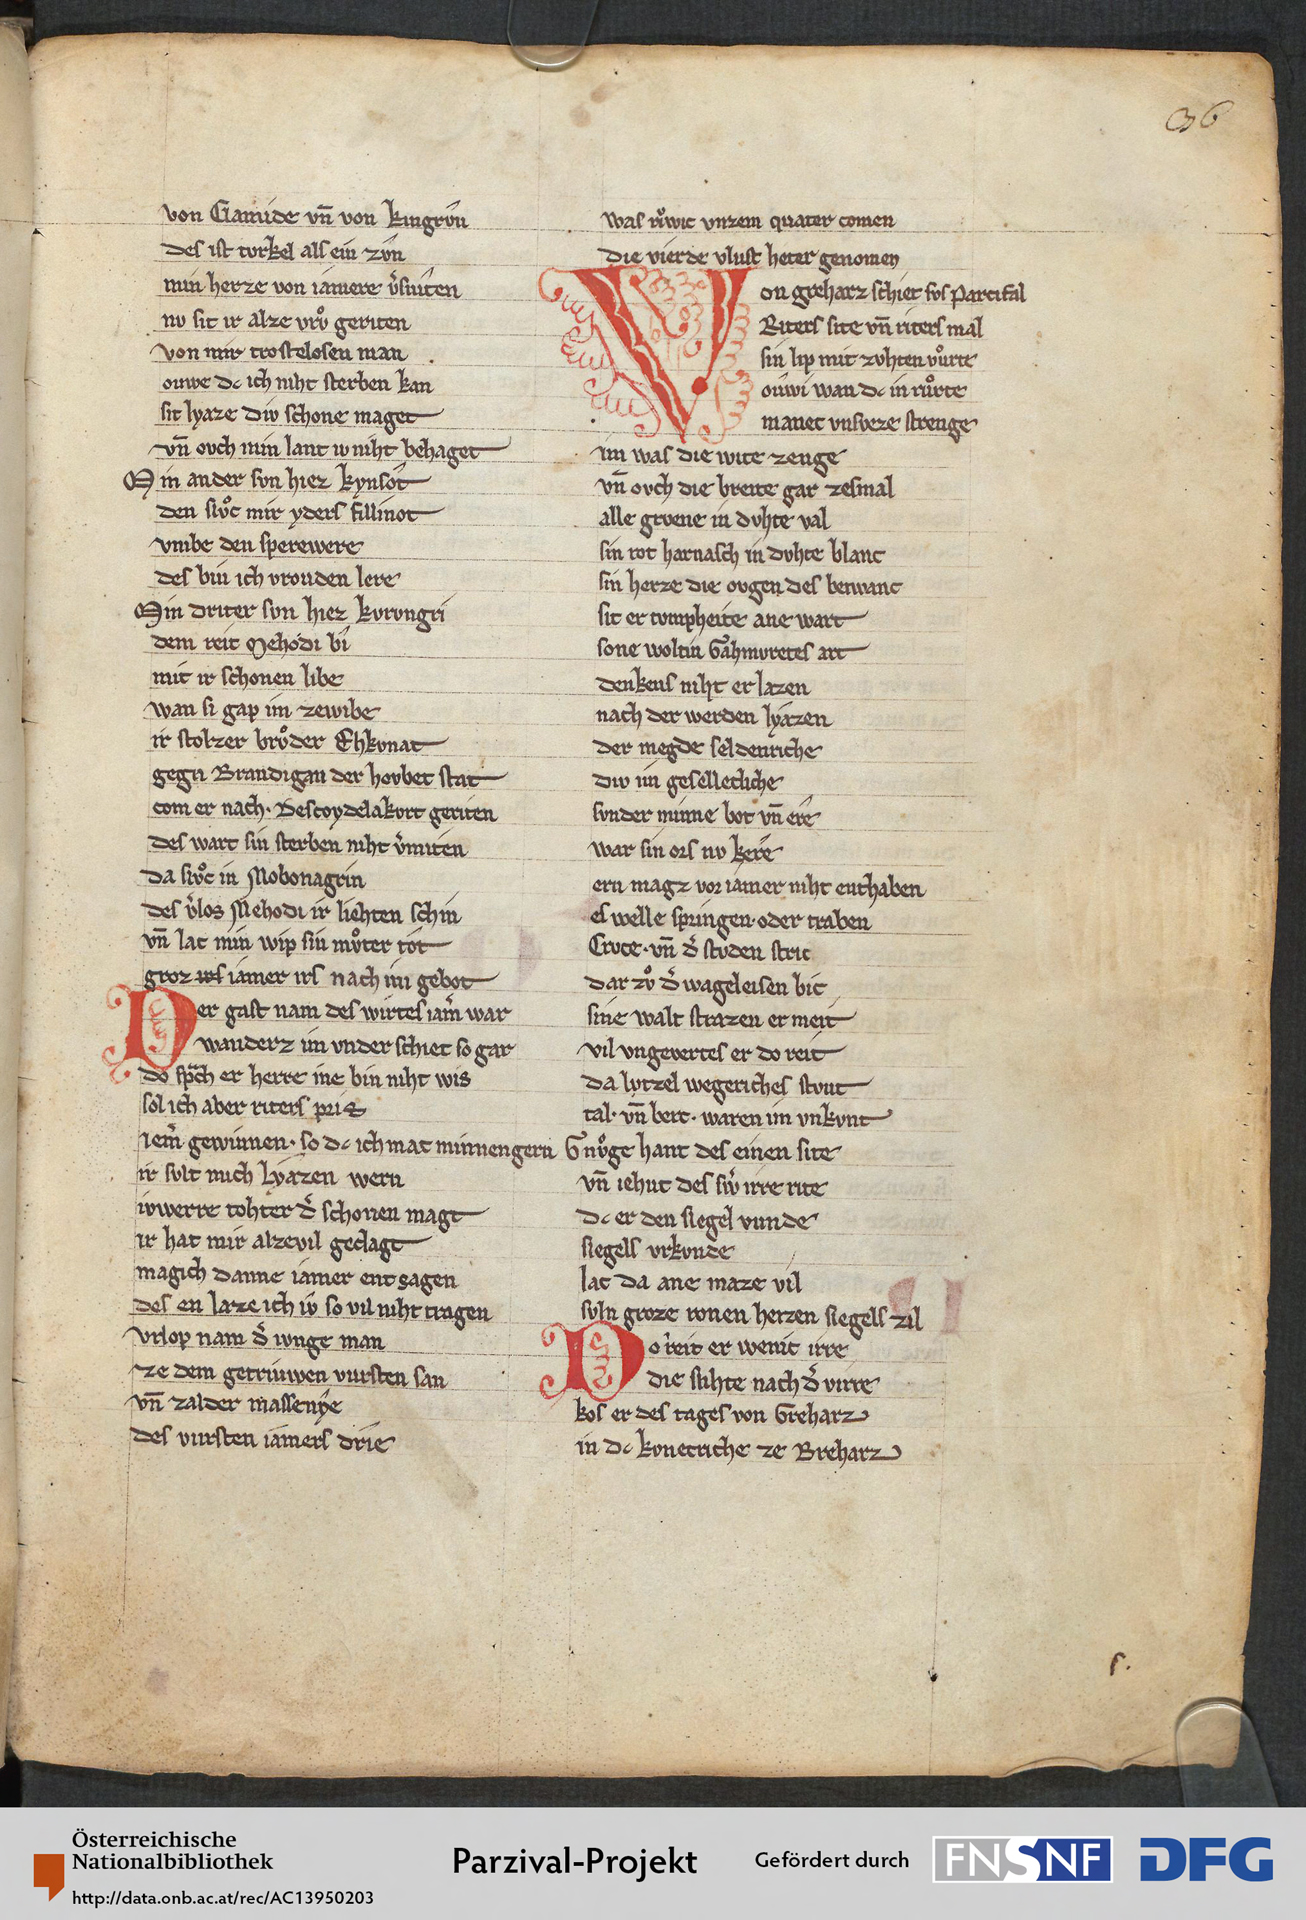 36
von Clamide vn̄ von kingrv̂n
des ist tvrkel alls ein zv̂n
min herze von iamere v̓sniten
nv sit ir alze vrvͦ geriten
von mir trostelosen man
ouwe dc ich niht sterben kan
sit lyaze div schone maget
vn̄ ovch min lant iv niht behaget
Min ander svn hiez kynsôt
den slvͦc mir yders fillinot
vmbe den sperewere
des bin ich vrouden lere
Min driter svn hiez kvrvngri
dem reit Mehodi bî
mit ir schonen libe
wan si gap im zewibe
ir stolzer brvͦder Ehkvnat
gegn Brandigan der hovbet stat
com er nach. Descoydelakvrt geriten
des wart sin sterben niht v̓miten
da slvͦc in Mobonagrin
des v̓los Mehodi ir liehten schin
vn̄ lac min wip sin mvͦter tôt
groz irs iamer irs nach im gebot
Der gast nam des wirtes iam̓ war
wanderz im vnder schiet so gar
do sp̄ch er herre ine bin niht wis
sol ich aber riters pris
iem̓ gewinnen. so dc ich mac minnen gern
ir svlt mich Lyazen wern
ivwerre tohter d̓ schonen magt
ir hat mir alzevil geclagt
magich danne iamer entsagen
des en laze ich iv so vil niht tragen
vrlop nam d̓ ivnge man
ze dem getriuwen vursten san
vn̄ zalder massenye
des vursten iamers drîe
was rivwic vnzem quater comen
die vierde vlust heter genomen
Von greharz schiet svs Parcifal
Riters site vn̄ riters mal
sin lip mit zvhten vuͦrte
ouwi wan dc in ruͦrte
manec vnsveze strenge
im was die wite zenge
vn̄ ovch die breite gar zesmal
alle grvene in dvhte val
sin rot harnasch in dvhte blanc
sin herze die ovgen des betwanc
sit er tvmpheite ane wart
sone woltin Gahmvretes art
denkens niht erlazen
nach der werden lyazen
der megde seldenriche
div im gesellecliche
svnder minne bot vn̄ ere
war sin ors nv kere
ern magz vor iamer niht enthaben
es welle springen. oder traben
Crvce. vn̄ d̓ stvden stric
dar zvͦ d̓ wageleisen bic
sine walt strazen er meit
vil vngevertes er do reit
da lvtzel wegeriches stvnt
tal. vn̄ berc. waren im vnkvnt
Gnvͦge hant des einen site
vn̄ iehnt des sw̓ irre rite
dc er den slegel vunde
slegels vrkvnde
lac da ane maze vil
svln groze ronen herzen slegels zil
Do reit er wenic irre
die slihte nach d̓ virre
kos er des tages von Greharz
in dc kvnecriche ze Breharz
Österreichische
Nationalbibliothek
http://data.onb.ac.at/rec/AC13950203
Parzival-Projekt
Gefördert durch
FNSNF
DFG